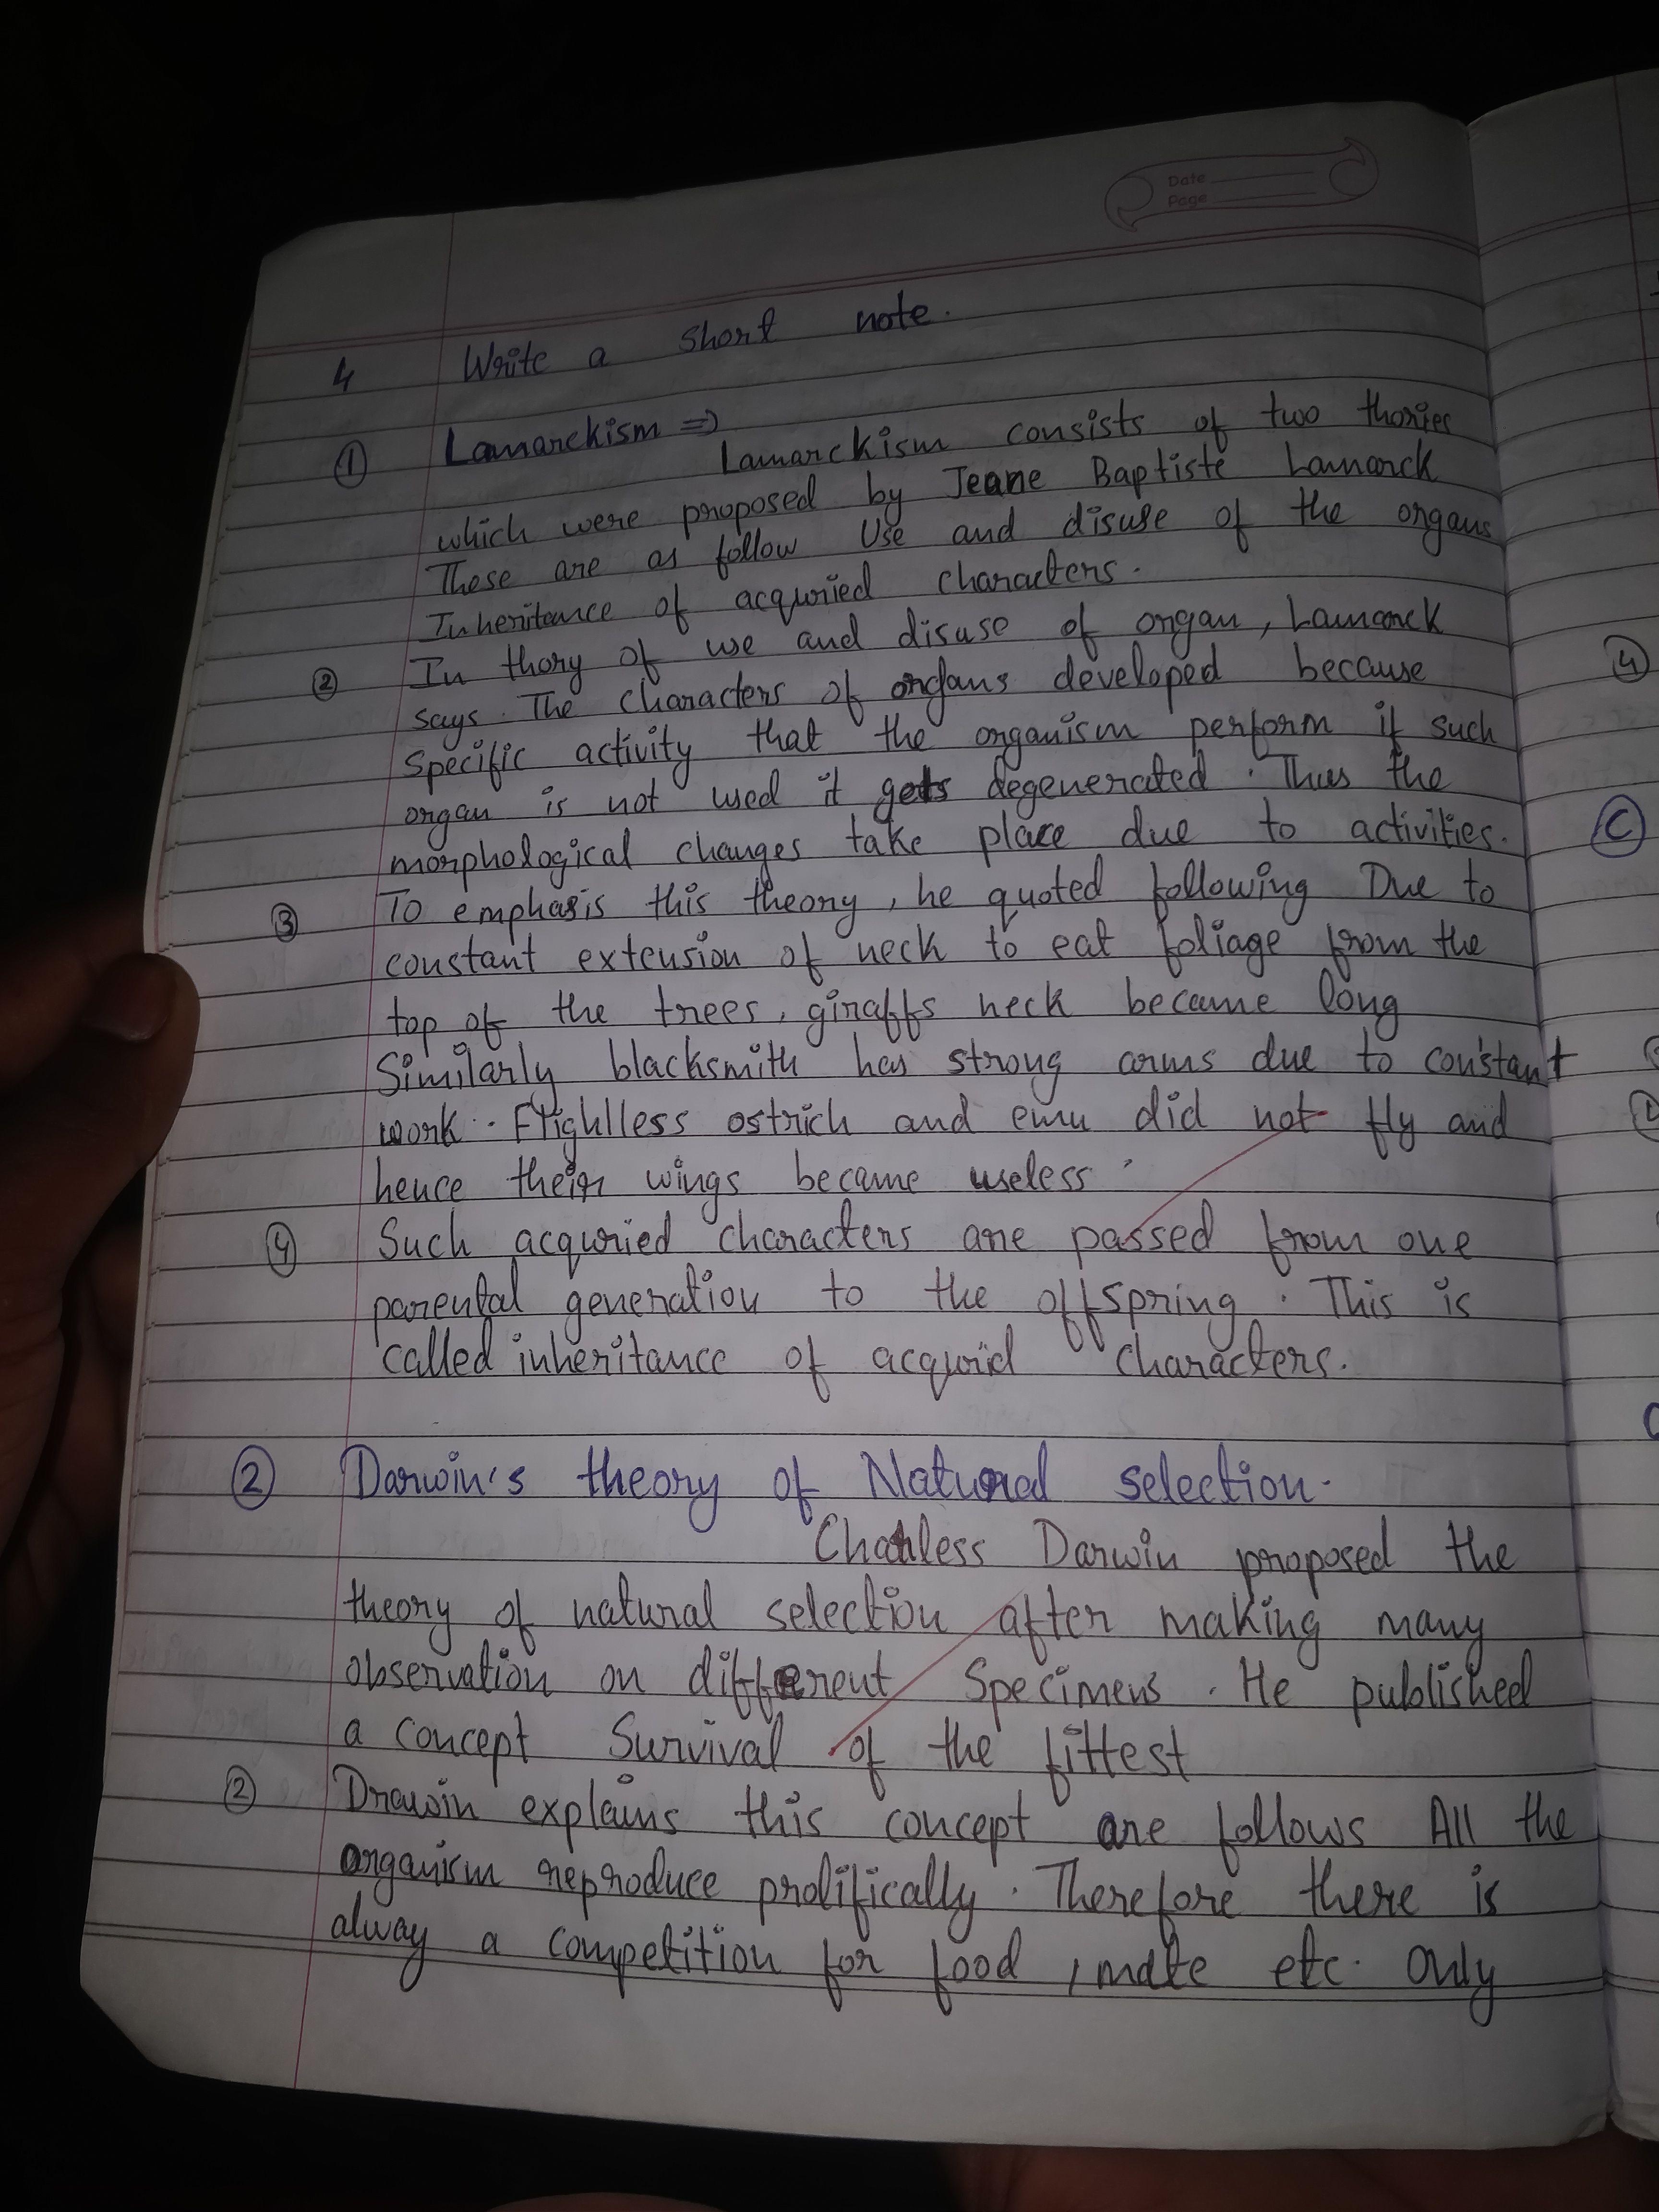 Date
Page
4 Write a short note.
① Lamarckism ⇒
Lamarckism consists of two thories
which were proposed by Jeane Baptiste Lamarck
These are as follow Use and disuse of the organs
Inheritance of acquried characters.
② In thory of use and disuse of organ, Lamarck
says. The characters of organs developed because
specific activity that the organism perform if such
organ is not used it gets degenerated. Thus the
morphological changes take place due to activities.
③ To emphasis this theory, he quoted following Due to
constant extension of neck to eat foliage from the
top of the trees, giraffs neck became long
Similarly blacksmith has strong arms due to constant
work. Flightless ostrich and emu did not fly and
hence their wings became useless.
④ Such acquried characters are passed from one
parental generation to the offspring. This is
called inheritance of acqurid characters.
② Darwin's theory of Natural selection.
Charless Darwin proposed the
theory of natural selection after making many
observation on different Specimens. He published
a concept Survival of the fittest
② Drawin explains this concept are follows All the
organism reproduce prolifically. Therefore there is
alway a competition for food, mate etc. only
④
C